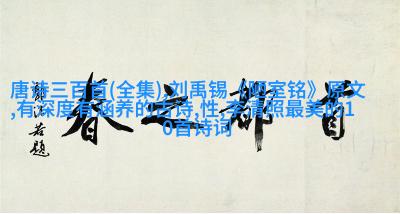 唐诗三百首(全集),刘禹锡《陋室铭》原文
,有深度有涵养的古诗,性,李清照最美的1
0首诗词
首都之春
郭沫若题